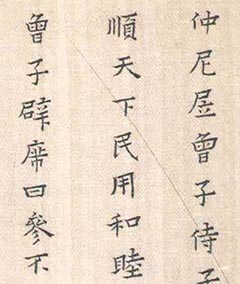 仲尼凥曾子侍子
順天下民用和睦
曾子辟席曰參不